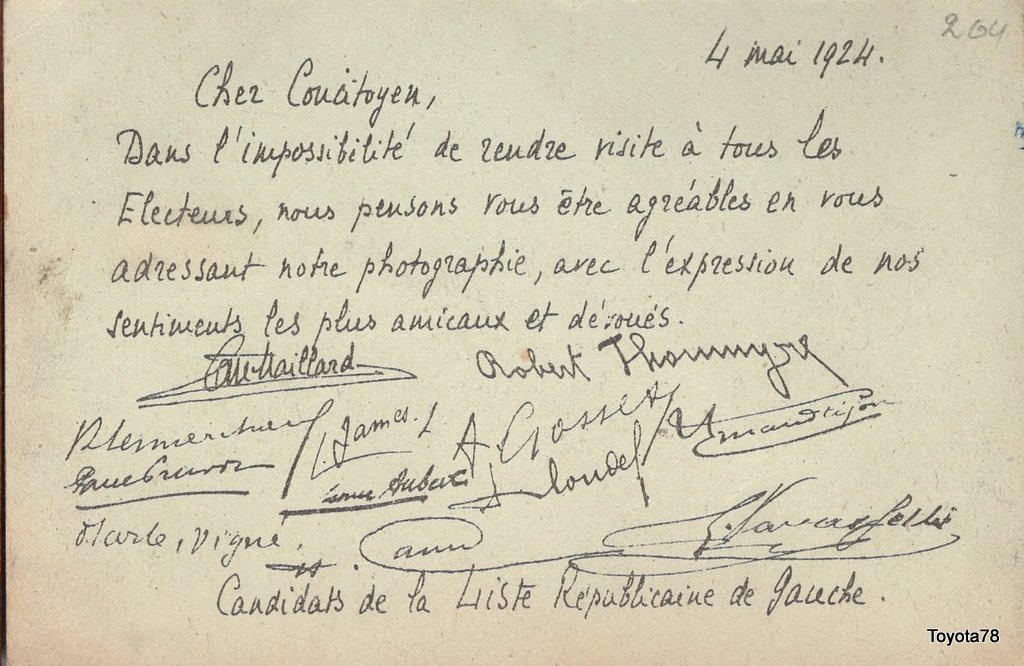 264
4 mai 1924.
Cher Concitoyen,
Dans l'impossibilité de rendre visite à tous les
Electeurs, nous pensons vous être agréables en vous
adressant notre photographie, avec l'expression de nos
sentiments les plus amicaux et dévoués.
Robert Thoumyre
James. L A. Gosset
Aubert
Marle, Vigné.
Candidats de la Liste Républicaine de Gauche.
Toyota78